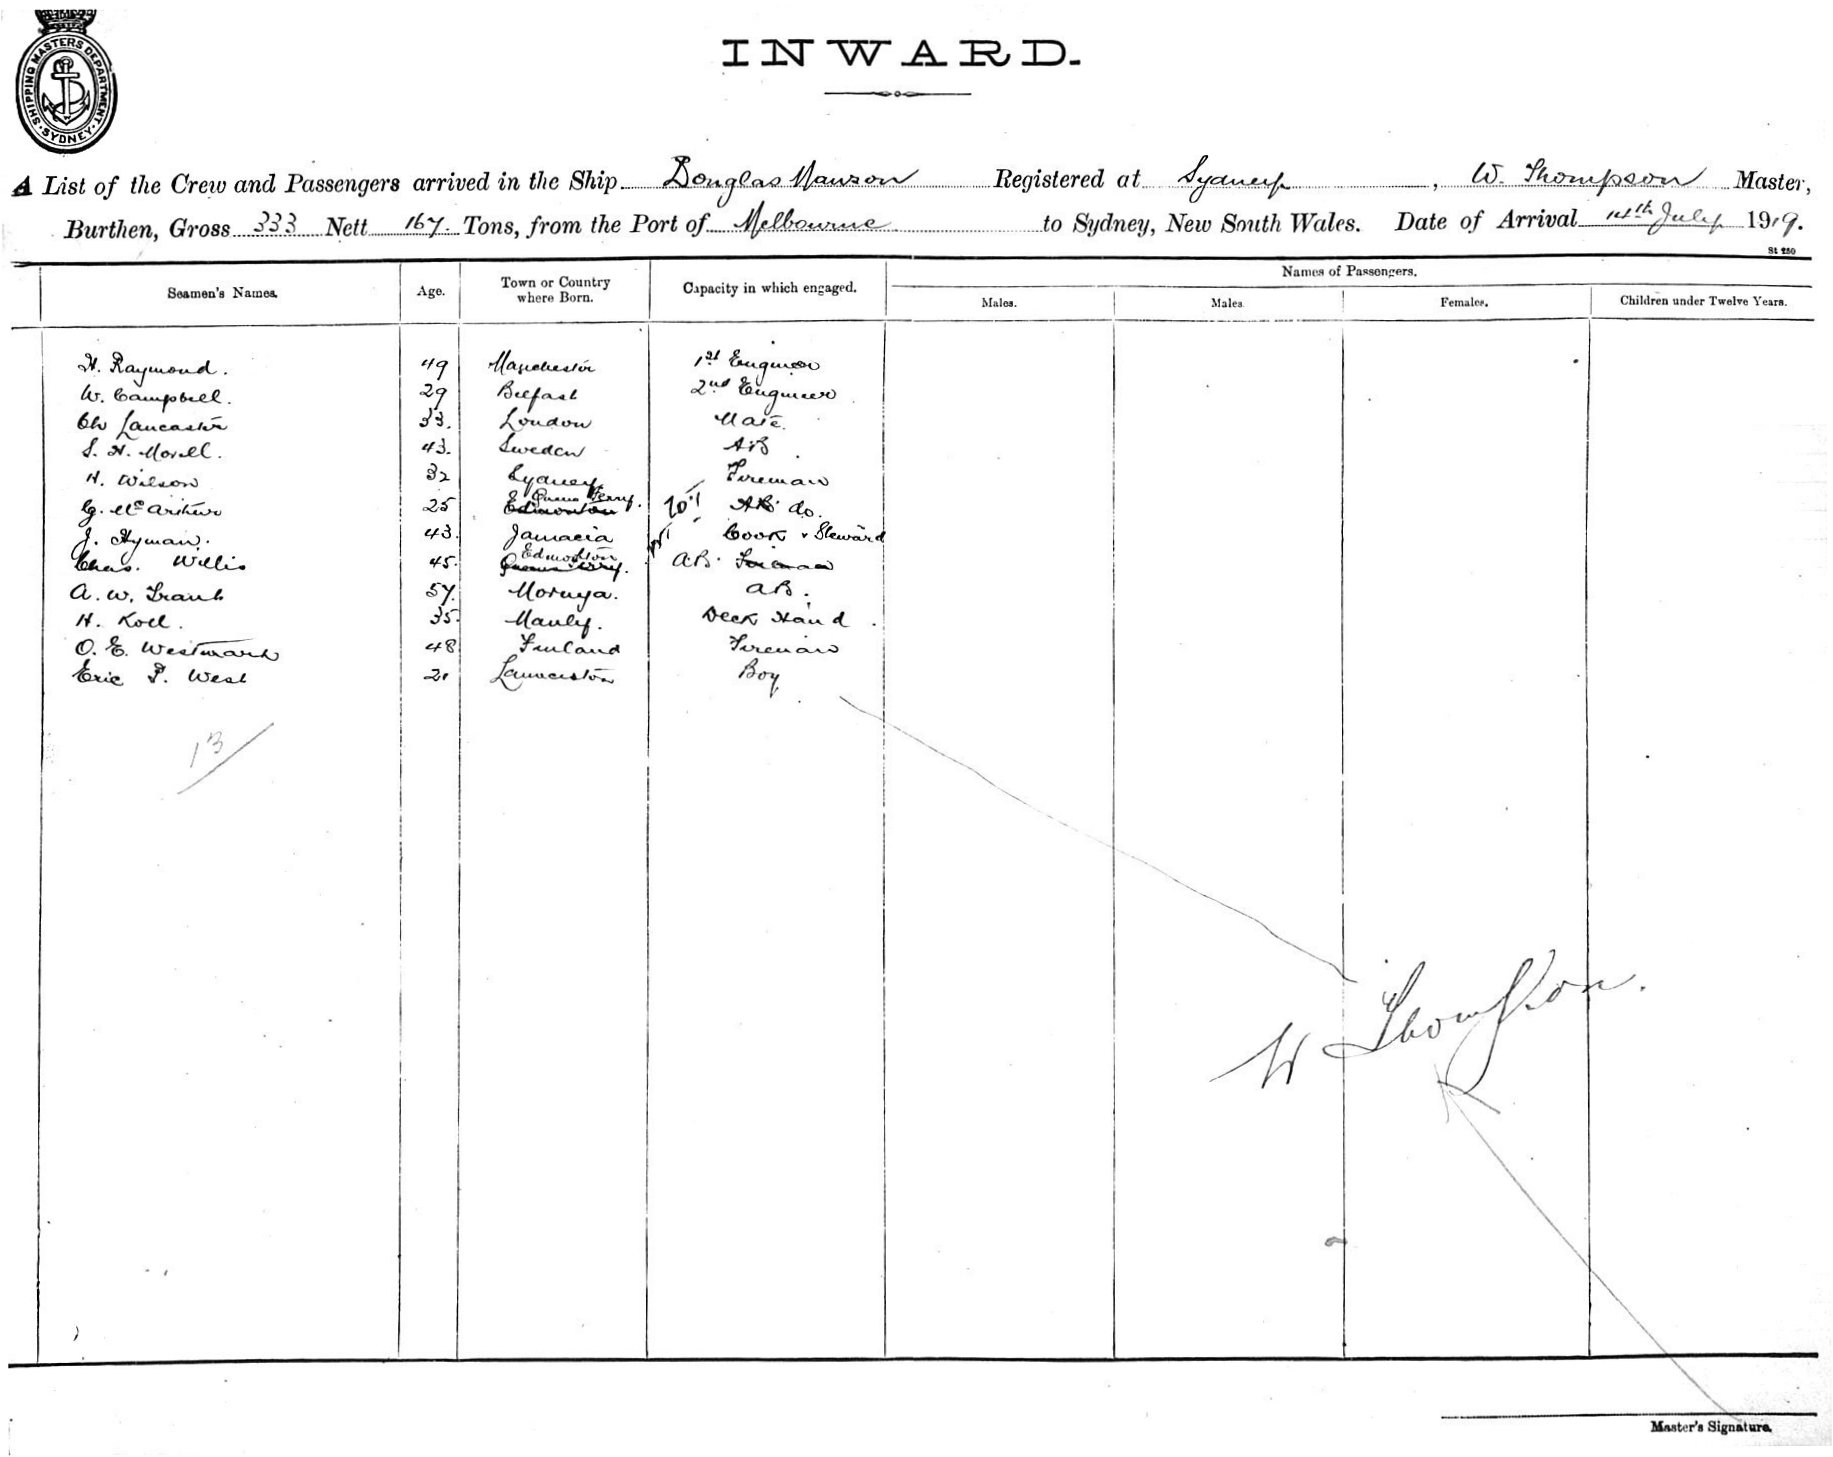 SHIPPING MASTERS DEPARTMENT
SYDNEY
INWARD.
A List of the Crew and Passengers arrived in the Ship Douglas Mawson Registered at Sydney, W. Thompson Master,
Burthen, Gross 333 Nett 167. Tons, from the Port of Melbourne to Sydney, New South Wales. Date of Arrival 14th July 1919.
St 250
Seamen's Names. Age. Town or Country where Born. Capacity in which engaged. Names of Passengers.
Males. Males. Females. Children under Twelve Years.
H. Raymond. 49 Manchester 1st Engineer
W. Campbell. 29 Belfast 2nd Engineer
Ch Lancaster 33. London Mate.
S. H. Morell. 43. Sweden AB
H. Wilson 32 Sydney Fireman
G. McArthur 25 Queens Ferry. Edmonton AB do.
J. Hyman. 43. Jamacia Cook & Steward
Chas. Willis 45. Edmonton Queens Ferry. A.B. Fireman
A. W. Frank 57. Moruya. AB.
H. Koll. 35. Manly. Deck Hand
O. E. Westmark 48 Finland Fireman
Eric P. West 21 Launceston Boy
13
W Thompson.
Master's Signature.